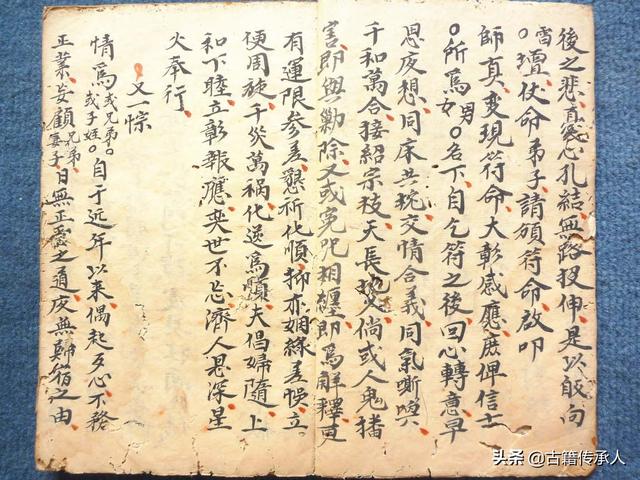 後之悲寔心孔結無路投伸是以皈向
雷○壇伏命弟子請頒符命啟叩
師真变現符命大彰感應庶俾信士
○所為男女○名下自乞符之後回心轉意早
思夜想同床共枕交情合義同氣
千和萬合接紹宗枝天長地久倘或人鬼播
害即與勦除又或冤咒相纏即為解釋更
有運限參差懇祈化順抑亦姻緣差悮立
便周旋千災萬禍化逆為順夫倡婦隨上
和下睦立彰報應奕世不忘濟人恩深星
火奉行
又一悰
情為或兄弟○或子姪○自于近年以來偶起歹心不務
正業妄顧兄弟妻子日無正之道夜無歸宿之由
头条 @古籍传承人